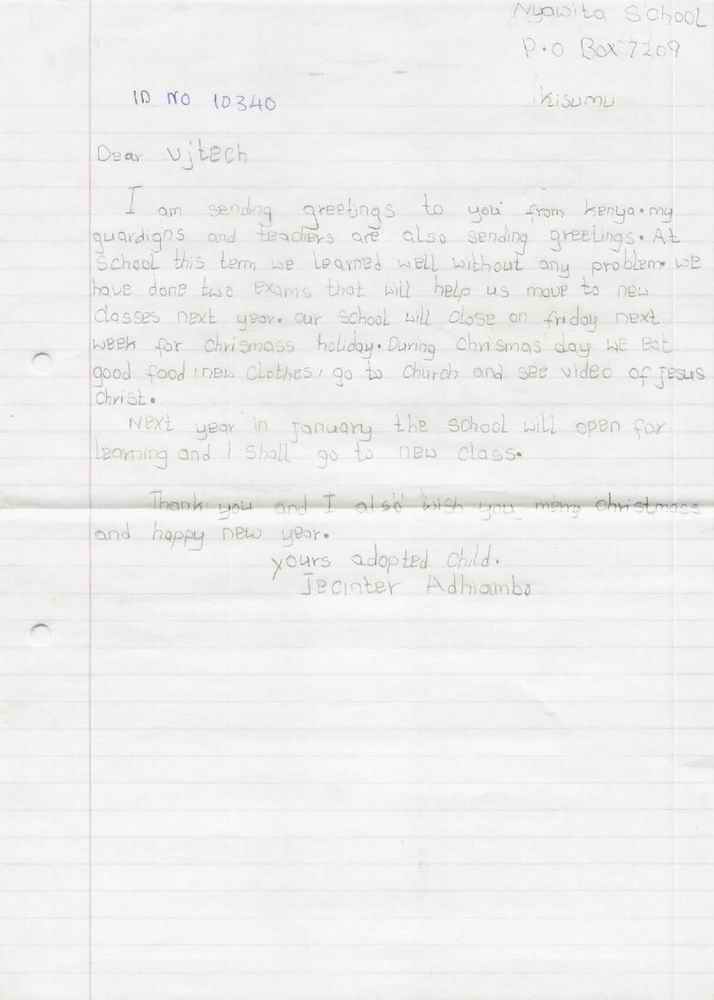 Nyawita School
P.o Box 7209
ID NO 10340
Kisumu
Dear vjtech
I am sending greetings to you from kenya. my
guardigns and teachers are also sending greetings. At
school this term we learned well without any problem. we
have done two exams that will help us move to new
classes next year. our school will close on friday next
week for chrismass holiday. During chrismas day we eat
good food, new clothes, go to church and see video of jesus
christ.
Next year in january the school will open for
learning and I shall go to new class.
Thank you and I also wish you merry christmass
and happy new year.
yours adopted child.
Jecinter Adhiambo